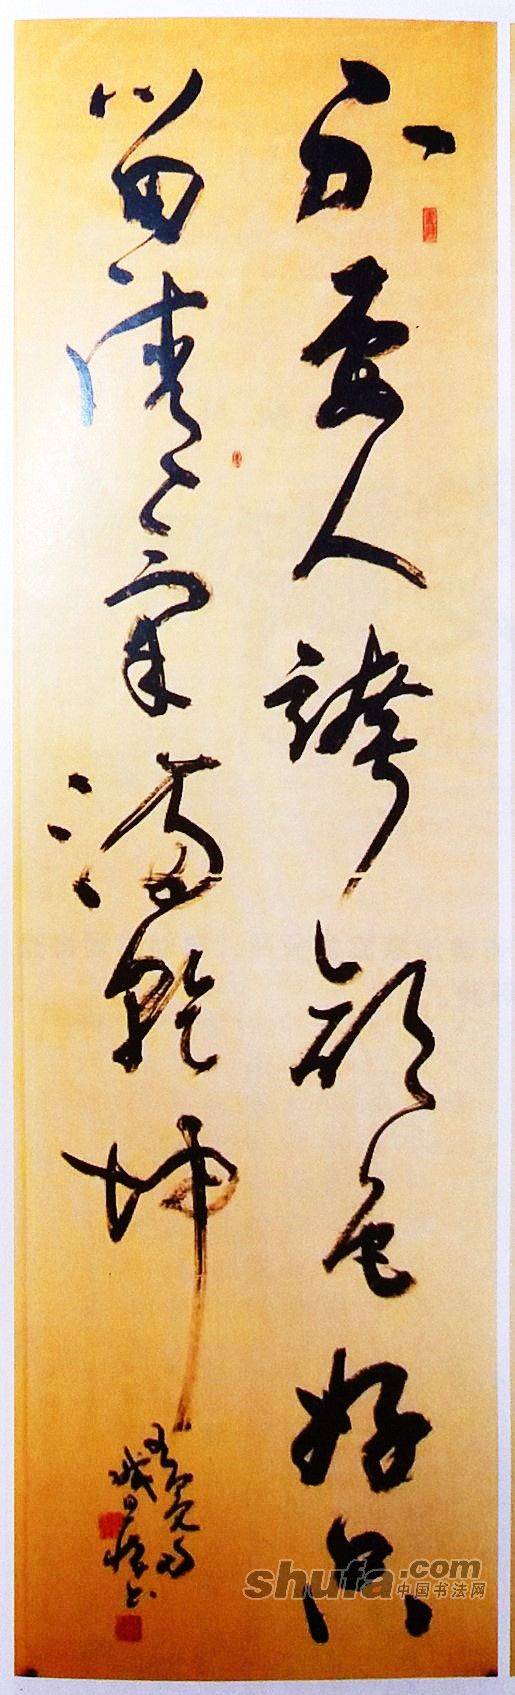 不要人誇顔色好只
留清氣滿乾坤
shufa.com
中国书法网